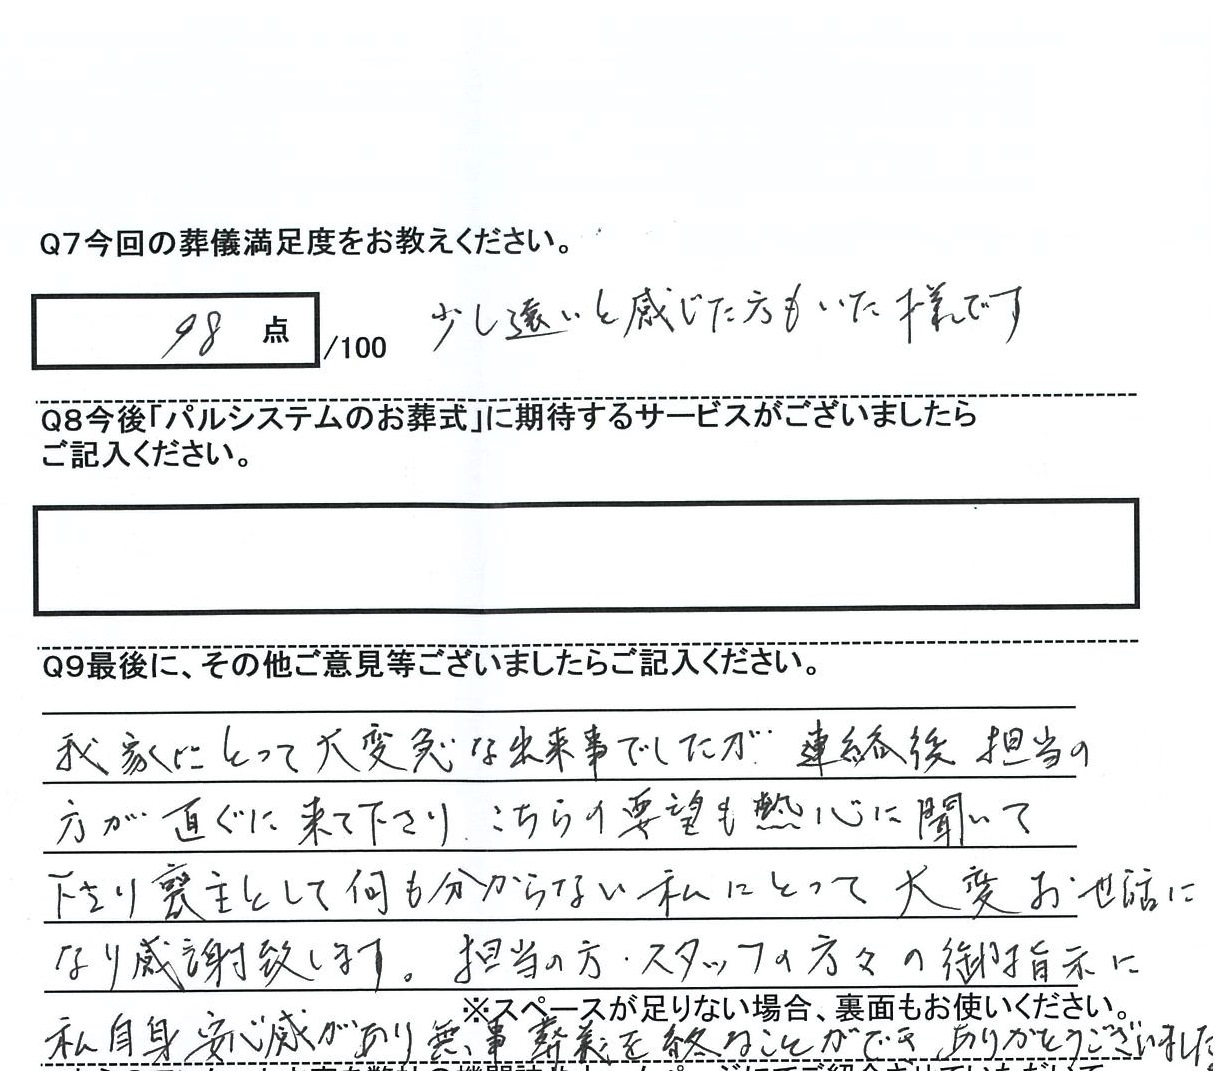 Q7今回の葬儀満足度をお教えください。
98 点 /100 少し遠いと感じた方もいた様です
Q8今後「パルシステムのお葬式」に期待するサービスがございましたら
ご記入ください。
Q9最後に、その他ご意見等ございましたらご記入ください。
我家にとって大変急な出来事でしたが 連絡後 担当の
方が 直ぐに来て下さり、こちらの要望も熱心に聞いて
下さり喪主として何も分からない私にとって大変お世話に
なり感謝致します。担当の方・スタッフの方々の御指示に
※スペースが足りない場合、裏面もお使いください。
私自身安心感があり無事葬義を終ることができ、ありがとうございました